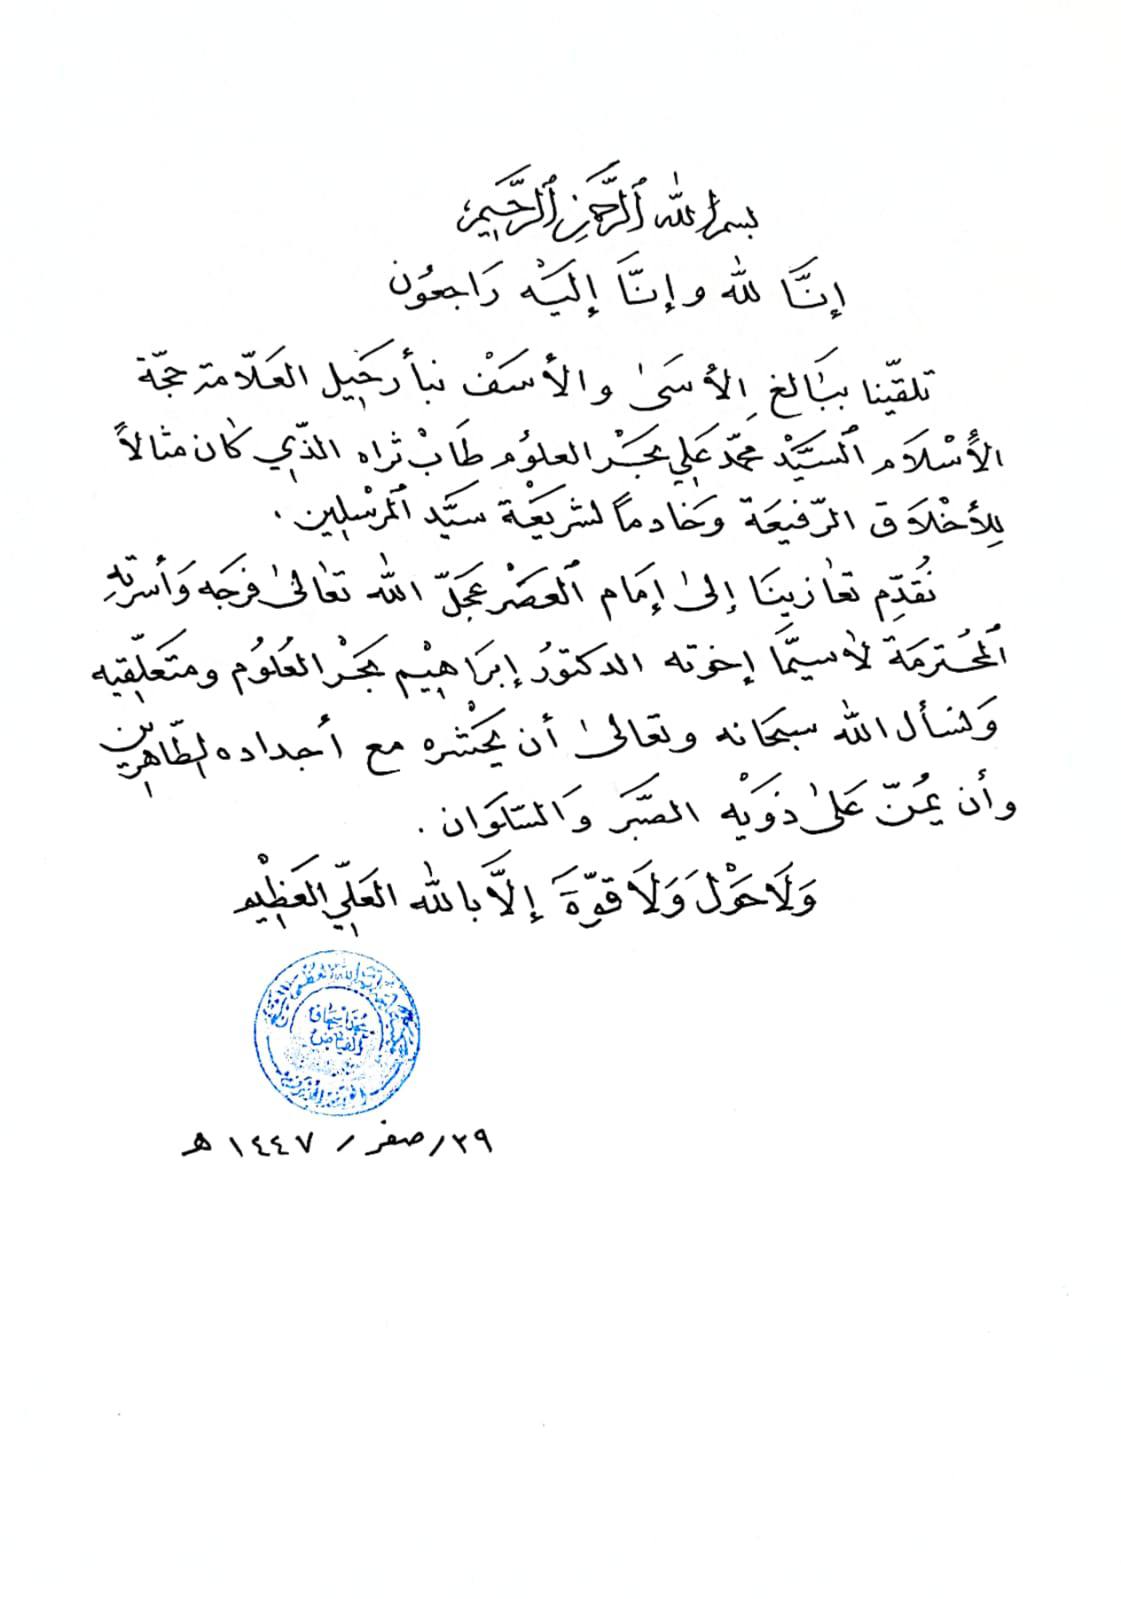 بسم الله ٱلرَّحمٰنِ ٱلرَّحِيمِ
إنَّا لله وإنَّا إليَه رَاجعُون
تلقّينا ببَالغ الأسَىٰ والأسَفْ نبأ رحَيل العَلّامة حجّة
الأسْلَام ٱلسيَّدْ محمّد عَلي بحَرْ العلوُم طَابْ ثراه الذّي كان مثالاً
لِلأخْلَاق الرّفيعَة وخَادماً لشريعَْة سيَّد ٱلمرسْلين .
نُقدِّم تعازينَا إلىٰ إمَام ٱلعصَرْ عجَلّ الله تعالىٰ فرجَه وَأسرتهِ
ٱلمحُترمَة لاسيمَّا إخوته الدكتورُ إبرَاهيْم بحَرْ العُلوُم ومتعَلّقيه
وَنسأل الله سبحَانه وتعالىٰ أن يحَشْره مع أجداده الطّاهرين
وأن يمُنّ عَلىٰ ذوَيْه الصّبَر وَالسّلوَان .
وَلَا حَوْلَ وَلَا قوّةَ إلَّا بالله العَليّ العَظيْم
محمد إسحاق
الفياض
٢٩/صفر/ ١٤٤٧ هـ